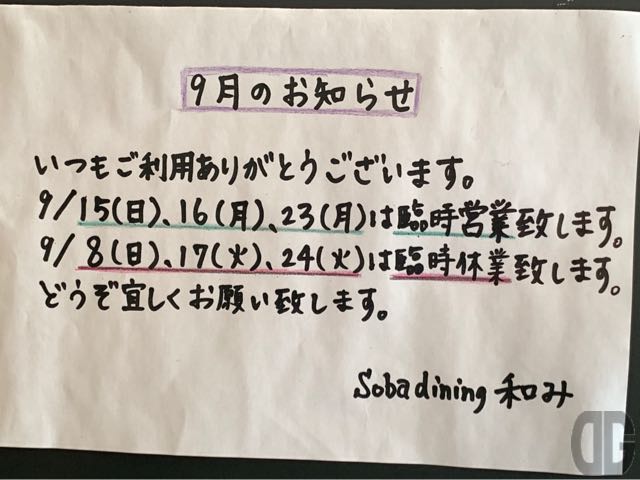 9月のお知らせ
いつもご利用ありがとうございます。
9/15(日)、16(月)、23(月)は臨時営業致します。
9/8(日)、17(火)、24(火)は臨時休業致します。
どうぞ宜しくお願い致します。
Sobadining 和み
DG